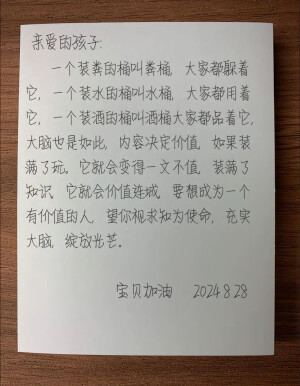 亲爱的孩子:
一个装粪的桶叫粪桶,大家都躲着
它,一个装水的桶叫水桶,大家都用着
它,一个装酒的桶叫酒桶大家都品着它,
大脑也是如此,内容决定价值,如果装
满了玩。它就会变得一文不值,装满了
知识,它就会价值连城,要想成为一个
有价值的人,望你视求知为使命,充实
大脑,绽放光芒。
宝贝加油 2024 8.28